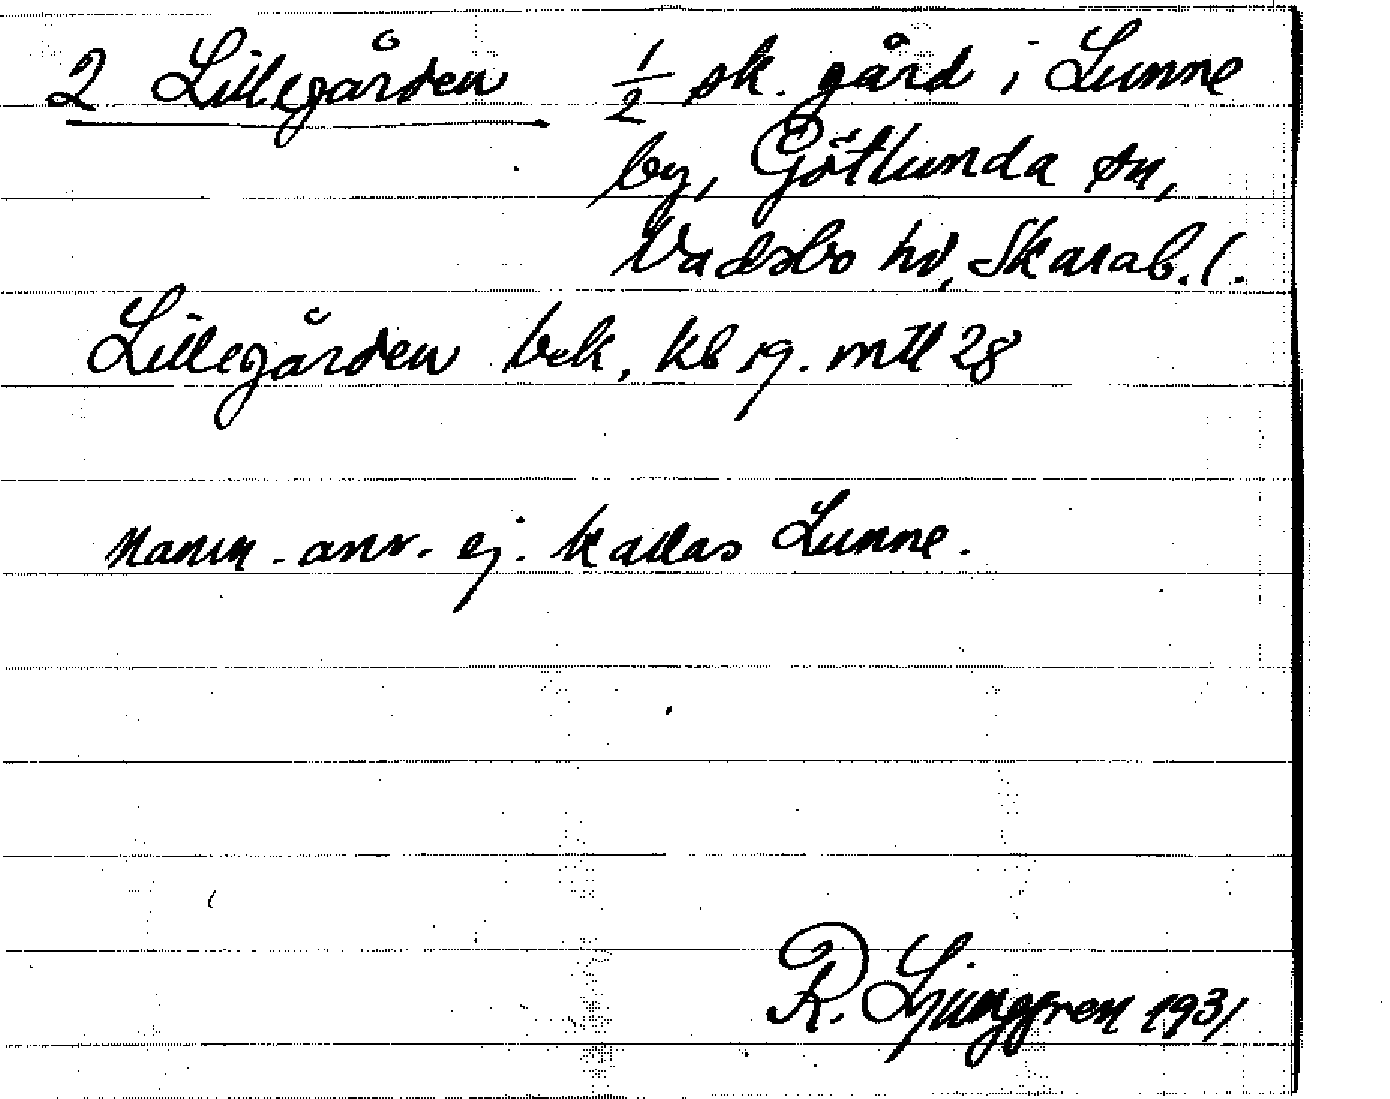 2 Lillegården ½ sk. gård i Lunne
by, Götlunda sn,
Vadsbo hd, Skarab. l.
Lillegården bek, kb 19. mtl 28
Namn. anv. ej. kallas Lunne.
R. Ljunggren 1931